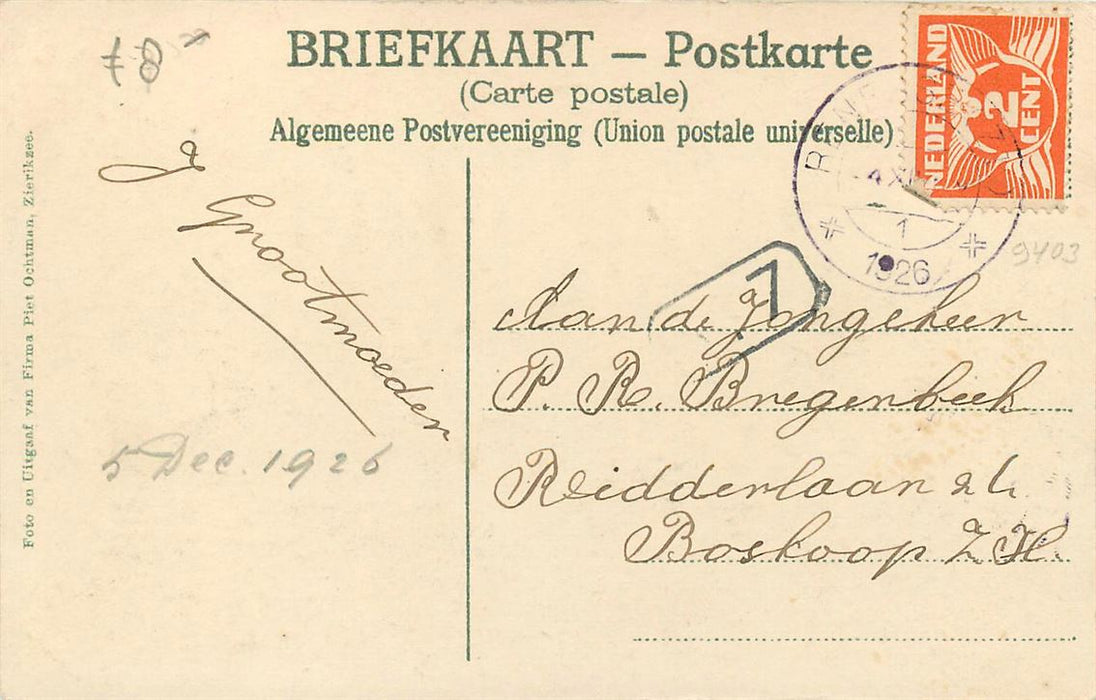 BRIEFKAART — Postkarte
(Carte postale)
Algemeene Postvereeniging (Union postale universelle)
NEDERLAND
2
CENT
4 XII
1
1926
7
9403
Grootmoeder
5 Dec. 1926
Aan de Jongeheer
P. R. Bregenbeek
Reidderlaan
Boskoop Z. H.
Foto en Uitgaaf van Firma Piet Ochtman, Zierikzee.